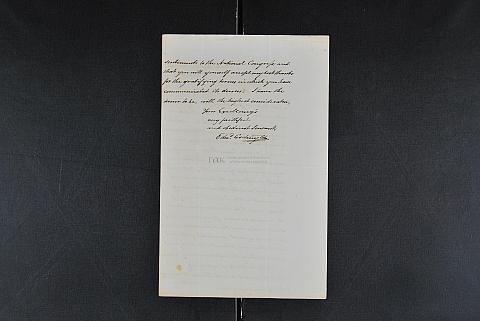 sentiments to the National Congress and
that you will yourself accept my best thanks
for the gratifying terms in which you have
communicated its decree. I have the
honor to be, with the highest consideration,
Your Excellency's
very faithful
and obedient Servant,
Edwd. Codrington